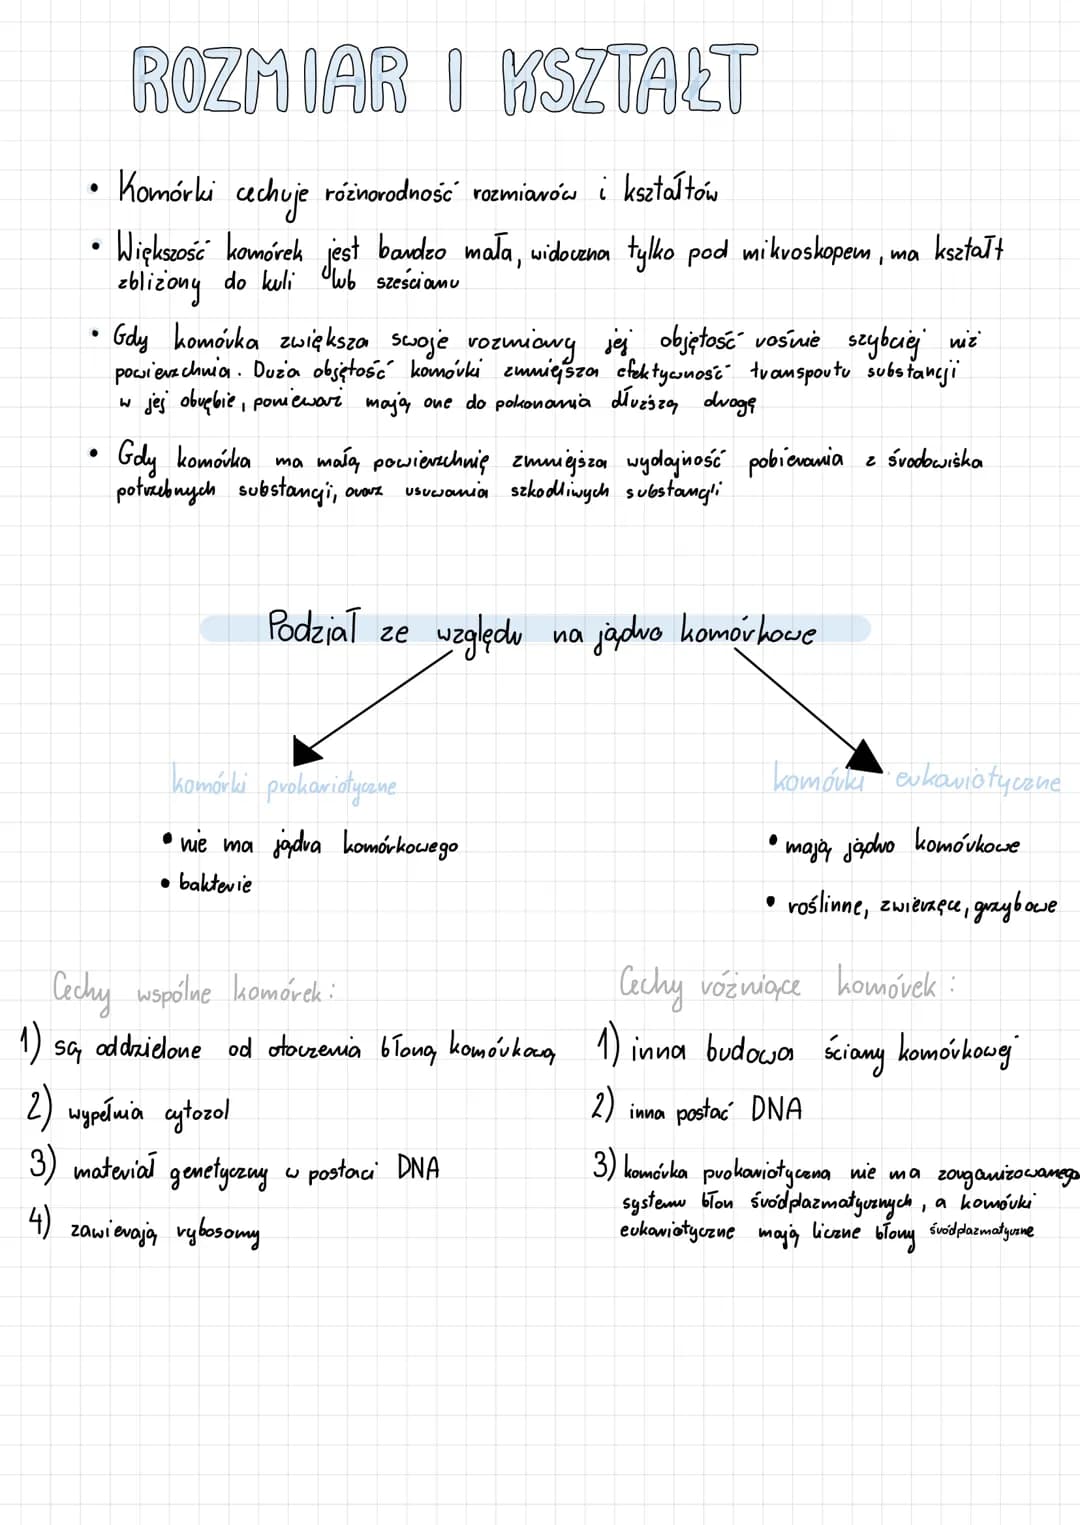 ROZMIAR I KSZTAŁT
• Komórki cechuje różnorodność rozmiarów i kształtów
• Większość komórek jest bardzo mała, widoczna tylko pod mikroskopem, ma kształt
zbliżony do kuli lub sześcianu
• Gdy komórka zwiększa swoje rozmiary jej objętość rośnie szybciej niż
powierzchnia. Duża objętość komórki zmniejsza efektywność transportu substancji
w jej obrębie, ponieważ mają one do pokonania dłuższą drogę
• Gdy komórka ma małą powierzchnię zmniejsza wydajność pobierania z środowiska
potrzebnych substancji, oraz usuwania szkodliwych substancji
Podział ze względu na jądro komórkowe
komórki prokariotyczne
• nie ma jądra komórkowego
• bakterie
komórki eukariotyczne
• mają jądro komórkowe
• roślinne, zwierzęce, grzybowe
Cechy wspólne komórek:
1) są oddzielone od otoczenia błoną komórkową
2) wypełnia cytozol
3) materiał genetyczny w postaci DNA
4) zawierają rybosomy
Cechy różniące komórek:
1) inna budowa ściany komórkowej
2) inna postać DNA
3) komórka prokariotyczna nie ma zorganizowanego
systemu błon śródplazmatycznych, a komórki
eukariotyczne mają liczne błony śródplazmatyczne